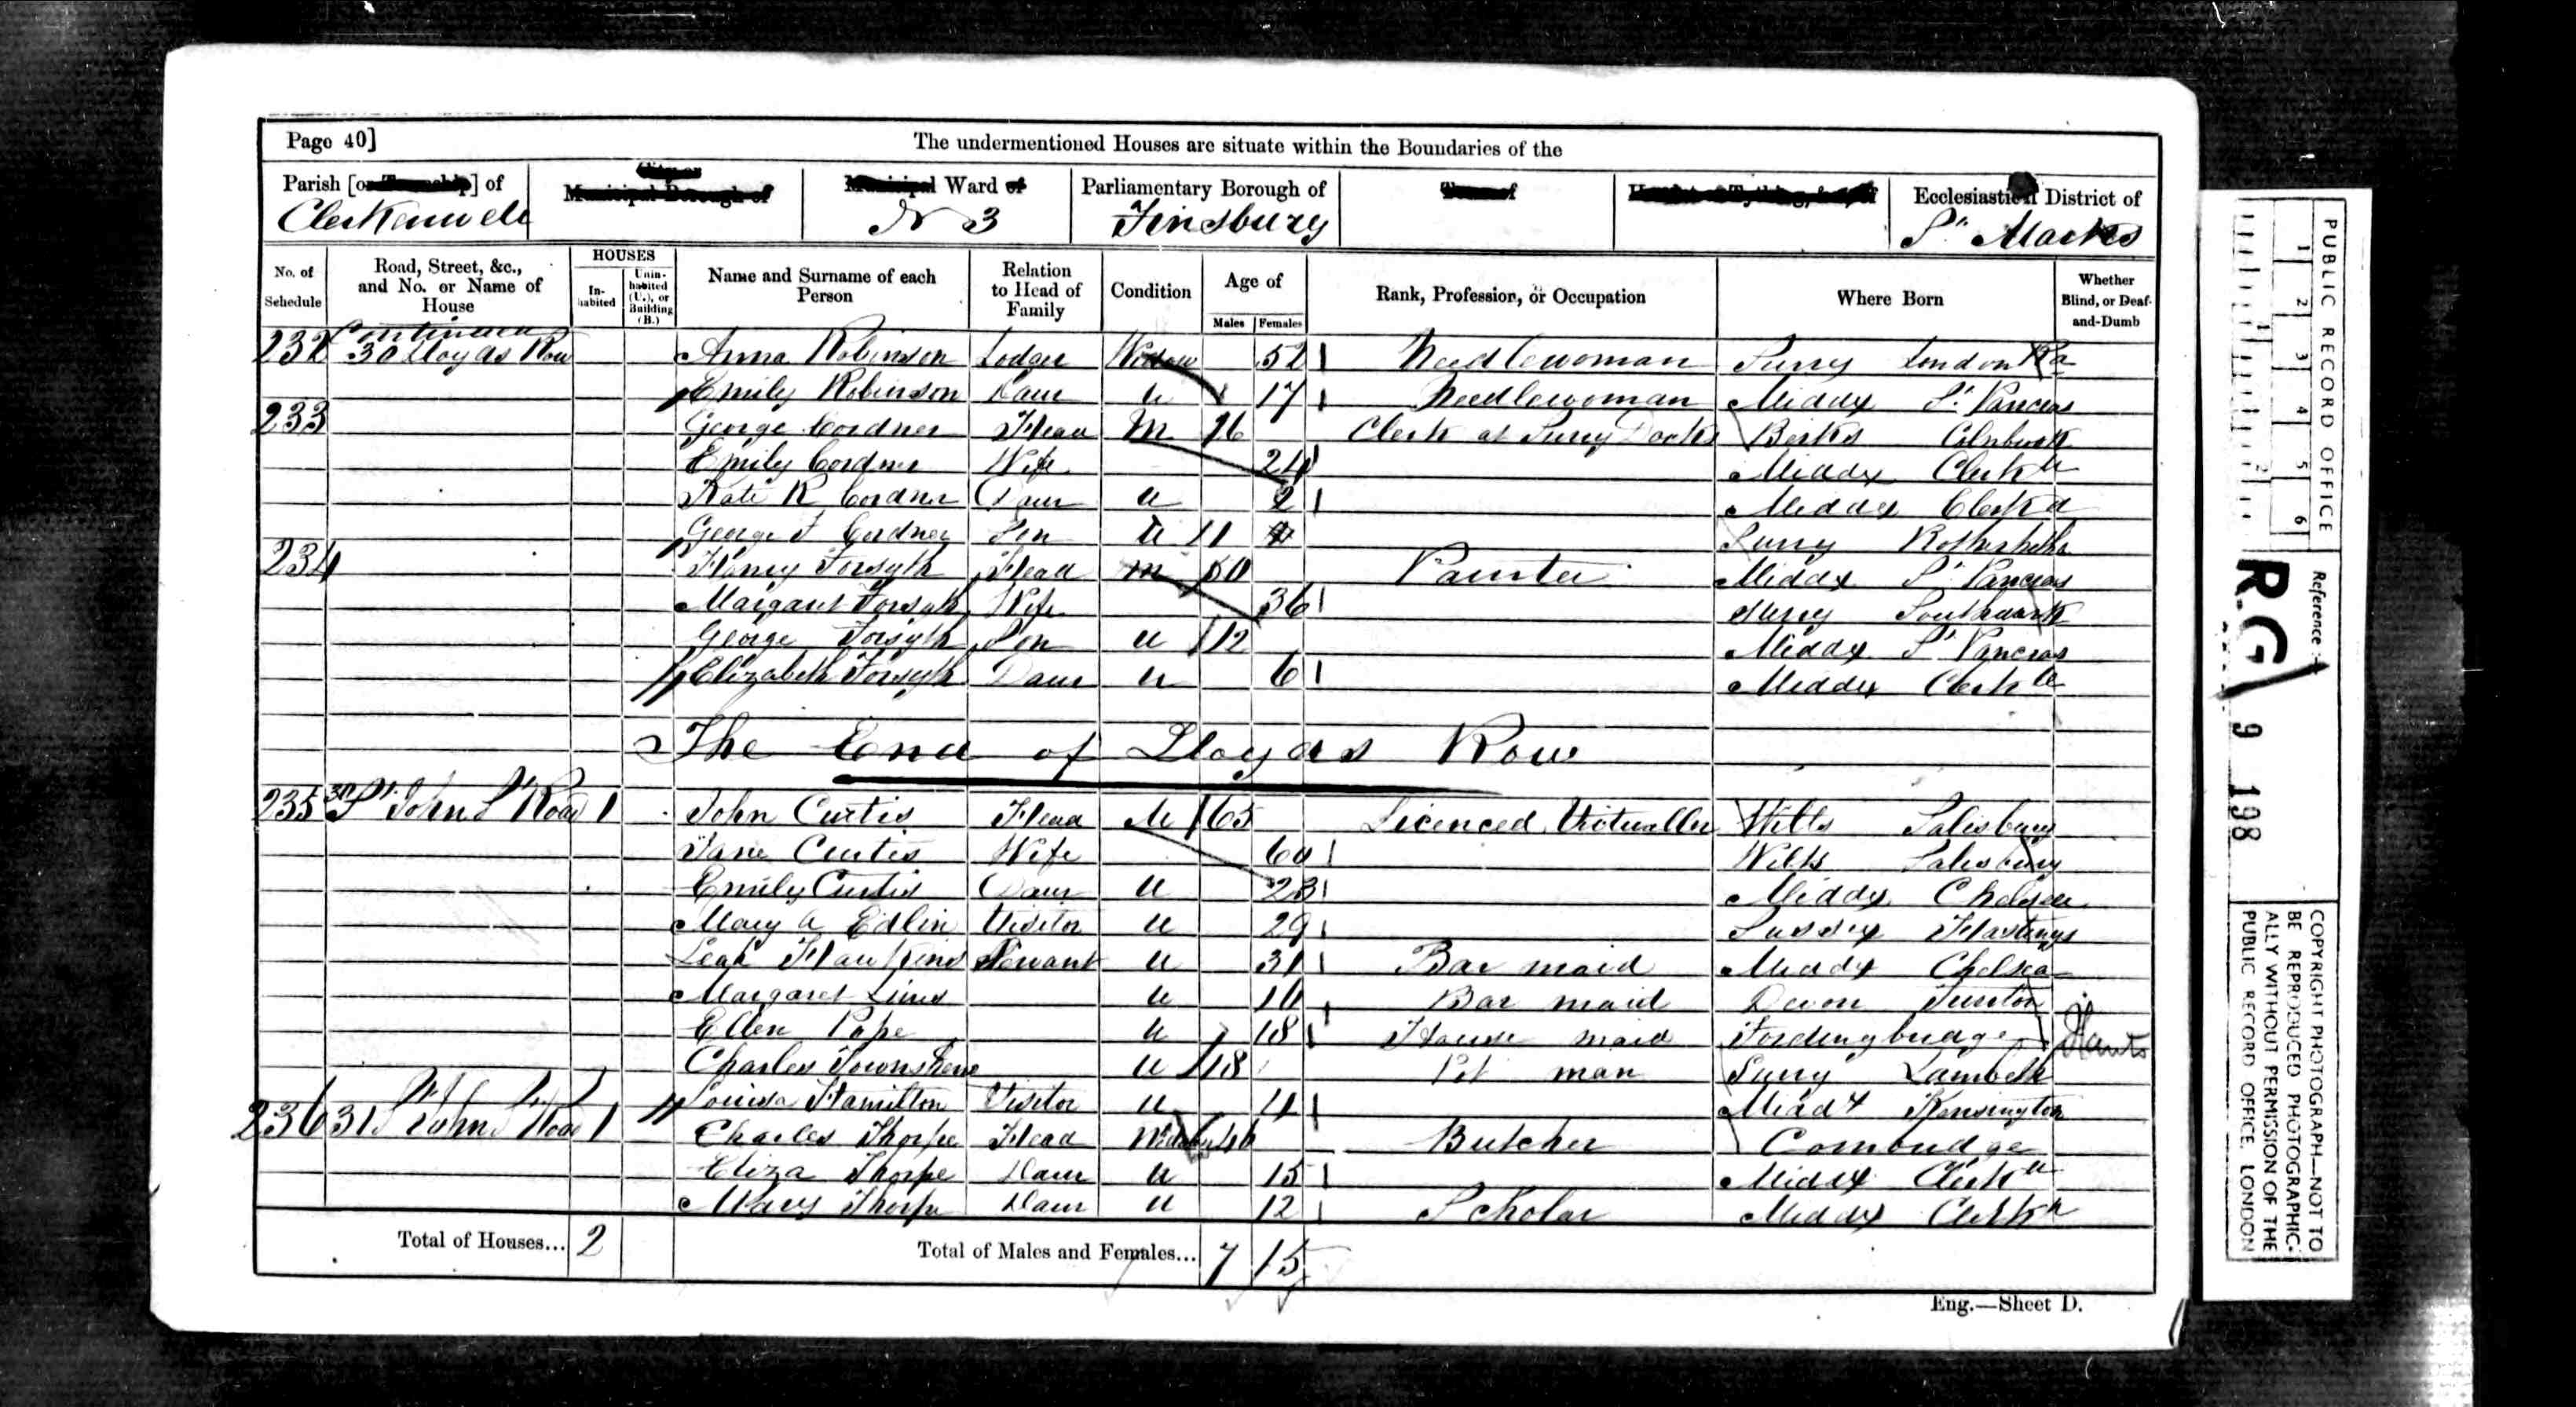 Page 40]
The undermentioned Houses are situate within the Boundaries of the
Parish [or Township] of
Clerkenwell
City or
Municipal Borough of
Municipal Ward of
No 3
Parliamentary Borough of
Finsbury
Town of
Ecclesiastical District of
St. Marks
No. of Schedule
Road, Street, &c., and No. or Name of House
HOUSES
In-habited
Unin-habited (U.), or Building (B.)
Name and Surname of each Person
Relation to Head of Family
Condition
Age of
Males
Females
Rank, Profession, or Occupation
Where Born
Whether Blind, or Deaf-and-Dumb
Continued
232 30 Lloyds Row Anna Robinson Lodger Widow 52 Needlewoman Surry London Rd
Emily Robinson Daur U 17 Needlewoman Middx St. Pancras
233 George Cordner Head M 26 Clerk at Surry Docks Berks
Emily Cordner Wife 24 Middx Clerkll
Kate R Cordner Daur U 2 Middx Clerkll
George F Cordner Son U 1 Surry
234 Henry Forsyth Head M Painter Middx St Pancras
Margaret Forsyth Wife 36 Surry Southwark
George Forsyth Son U 12 Middx St Pancras
Elizabeth Forsyth Daur U 6 Middx Clerkll
The End of Lloyds Row
235 30 St. John St Road 1 John Curtis Head M 65 Licenced Victualler Wilts Salisbury
Jane Curtis Wife 60 Wilts Salisbury
Emily Curtis Daur U 23 Middx Chelsea
Mary A Edlin Visitor U 29 Sussex Hastings
Leah Hawkins Servant U 31 Bar maid Middx Chelsea
Margaret U Bar maid Devon
Ellen Pope U 18 House maid Fordingbridge Hants
Charles Townshend U 18 Pot man Surry Lambeth
Louisa Hamilton Visitor U Middx Kensington
236 31 St John St Road 1 Charles Thorpe Head Widower 46 Butcher Cambridge
Eliza Thorpe Daur U 15 Middx Clerkll
Mary Thorpe Daur U 12 Scholar Middx Clerkll
Total of Houses... 2
Total of Males and Females... 7 15
Eng.—Sheet D.
PUBLIC RECORD OFFICE
1 2 3 4 5 6
1 2
Reference :-
R.G. 9 198
COPYRIGHT PHOTOGRAPH—NOT TO
BE REPRODUCED PHOTOGRAPHIC-
ALLY WITHOUT PERMISSION OF THE
PUBLIC RECORD OFFICE, LONDON